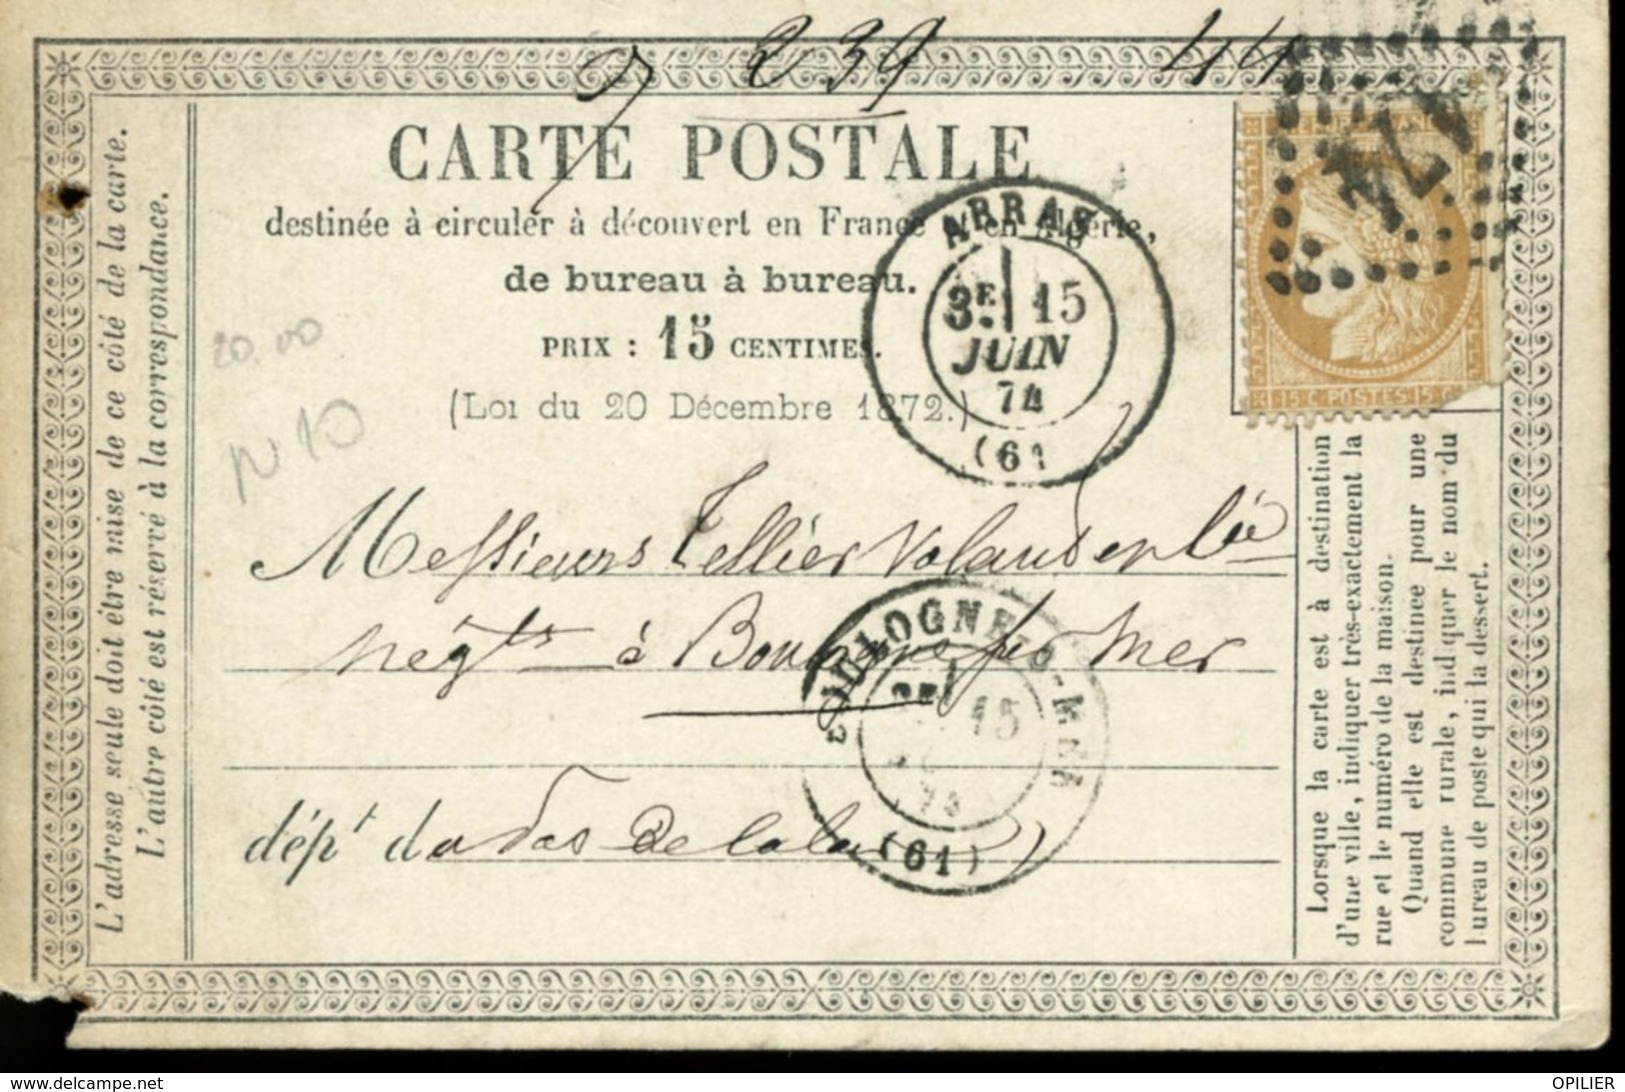 239 44
CARTE POSTALE
destinée à circuler à découvert en France et en Algérie,
de bureau à bureau.
PRIX : 15 CENTIMES.
(Loi du 20 Décembre 1872.)
L'adresse seule doit être mise de ce côté de la carte.
L'autre côté est réservé à la correspondance.
20.00
N 10
ARRAS
3E 15
JUIN
74
(61
15 C. POSTES 15 C.
Messieurs Tellier
négts à Boulogne sur Mer
dépt du Pas De Calais
BOULOGNE-S-MER
15
74
(61)
Lorsque la carte est à destination
d'une ville, indiquer très-exactement la
rue et le numéro de la maison.
Quand elle est destinée pour une
commune rurale, indiquer le nom du
bureau de poste qui la dessert.
delcampe.net
OPILIER